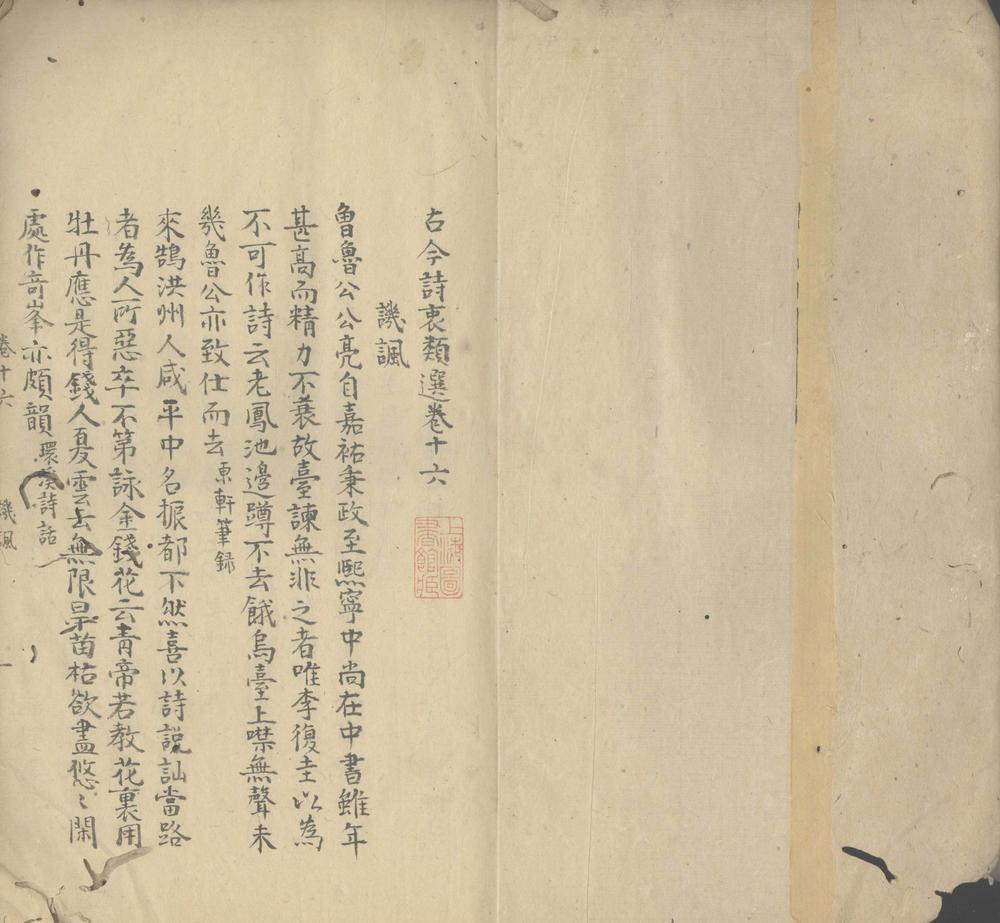 古今詩衷類選卷十六
譏諷
曾魯公公亮自嘉祐秉政至熙寧中尚在中書雖年
甚高而精力不衰故臺諫無非之者唯李復圭以為
不可作詩云老鳳池邊蹲不去餓烏臺上噤無聲未
幾魯公亦致仕而去東軒筆録
來鵠洪州人咸平中名振都下然喜以詩説訕當路
者為人所惡卒不第詠金錢花云青帝若教花裏用
牡丹應是得錢人夏雲云無限旱苗枯欲盡悠〻閑
處作竒峯亦頗韻環溪詩話
卷十六 譏諷 一
上海圖書館藏